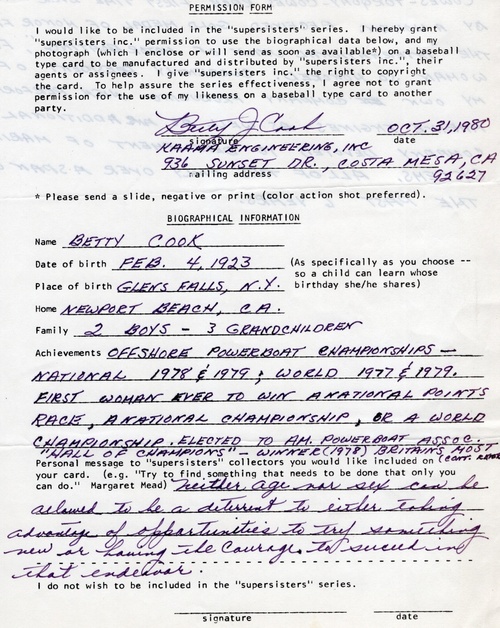 PERMISSION FORM
I would like to be included in the "supersisters" series. I hereby grant
"supersisters inc." permission to use the biographical data below, and my
photograph (which I enclose or will send as soon as available*) on a baseball
type card to be manufactured and distributed by "supersisters inc.", their
agents or assignees. I give "supersisters inc." the right to copyright
the card. To help assure the series effectiveness, I agree not to grant
permission for the use of my likeness on a baseball type card to another
party.
Betty J Cook OCT. 31, 1980
signature date
KAAMA ENGINEERING, INC
936 SUNSET DR., COSTA MESA, CA
mailing address 92627
* Please send a slide, negative or print (color action shot preferred).
BIOGRAPHICAL INFORMATION
Name BETTY COOK
Date of birth FEB. 4, 1923 (As specifically as you choose --
so a child can learn whose
Place of birth GLENS FALLS, N.Y. birthday she/he shares)
Home NEWPORT BEACH, CA.
Family 2 BOYS - 3 GRANDCHILDREN
Achievements OFFSHORE POWERBOAT CHAMPIONSHIPS -
NATIONAL 1978 & 1979; WORLD 1977 & 1979.
FIRST WOMAN EVER TO WIN A NATIONAL POINTS
RACE, A NATIONAL CHAMPIONSHIP, OR A WORLD
CHAMPIONSHIP. ELECTED TO AM. POWERBOAT ASSOC.
"HALL OF CHAMPIONS" - WINNER (1978) BRITAINS MOST
Personal message to "supersisters" collectors you would like included on (CONT.
your card. (e.g. "Try to find something that needs to be done that only you
can do." Margaret Mead) neither age nor sex can be
allowed to be a deterrent to either taking
advantage of opportunities to try something
new or having the courage to succeed in
that endeavor.
I do not wish to be included in the "supersisters" series.
signature date